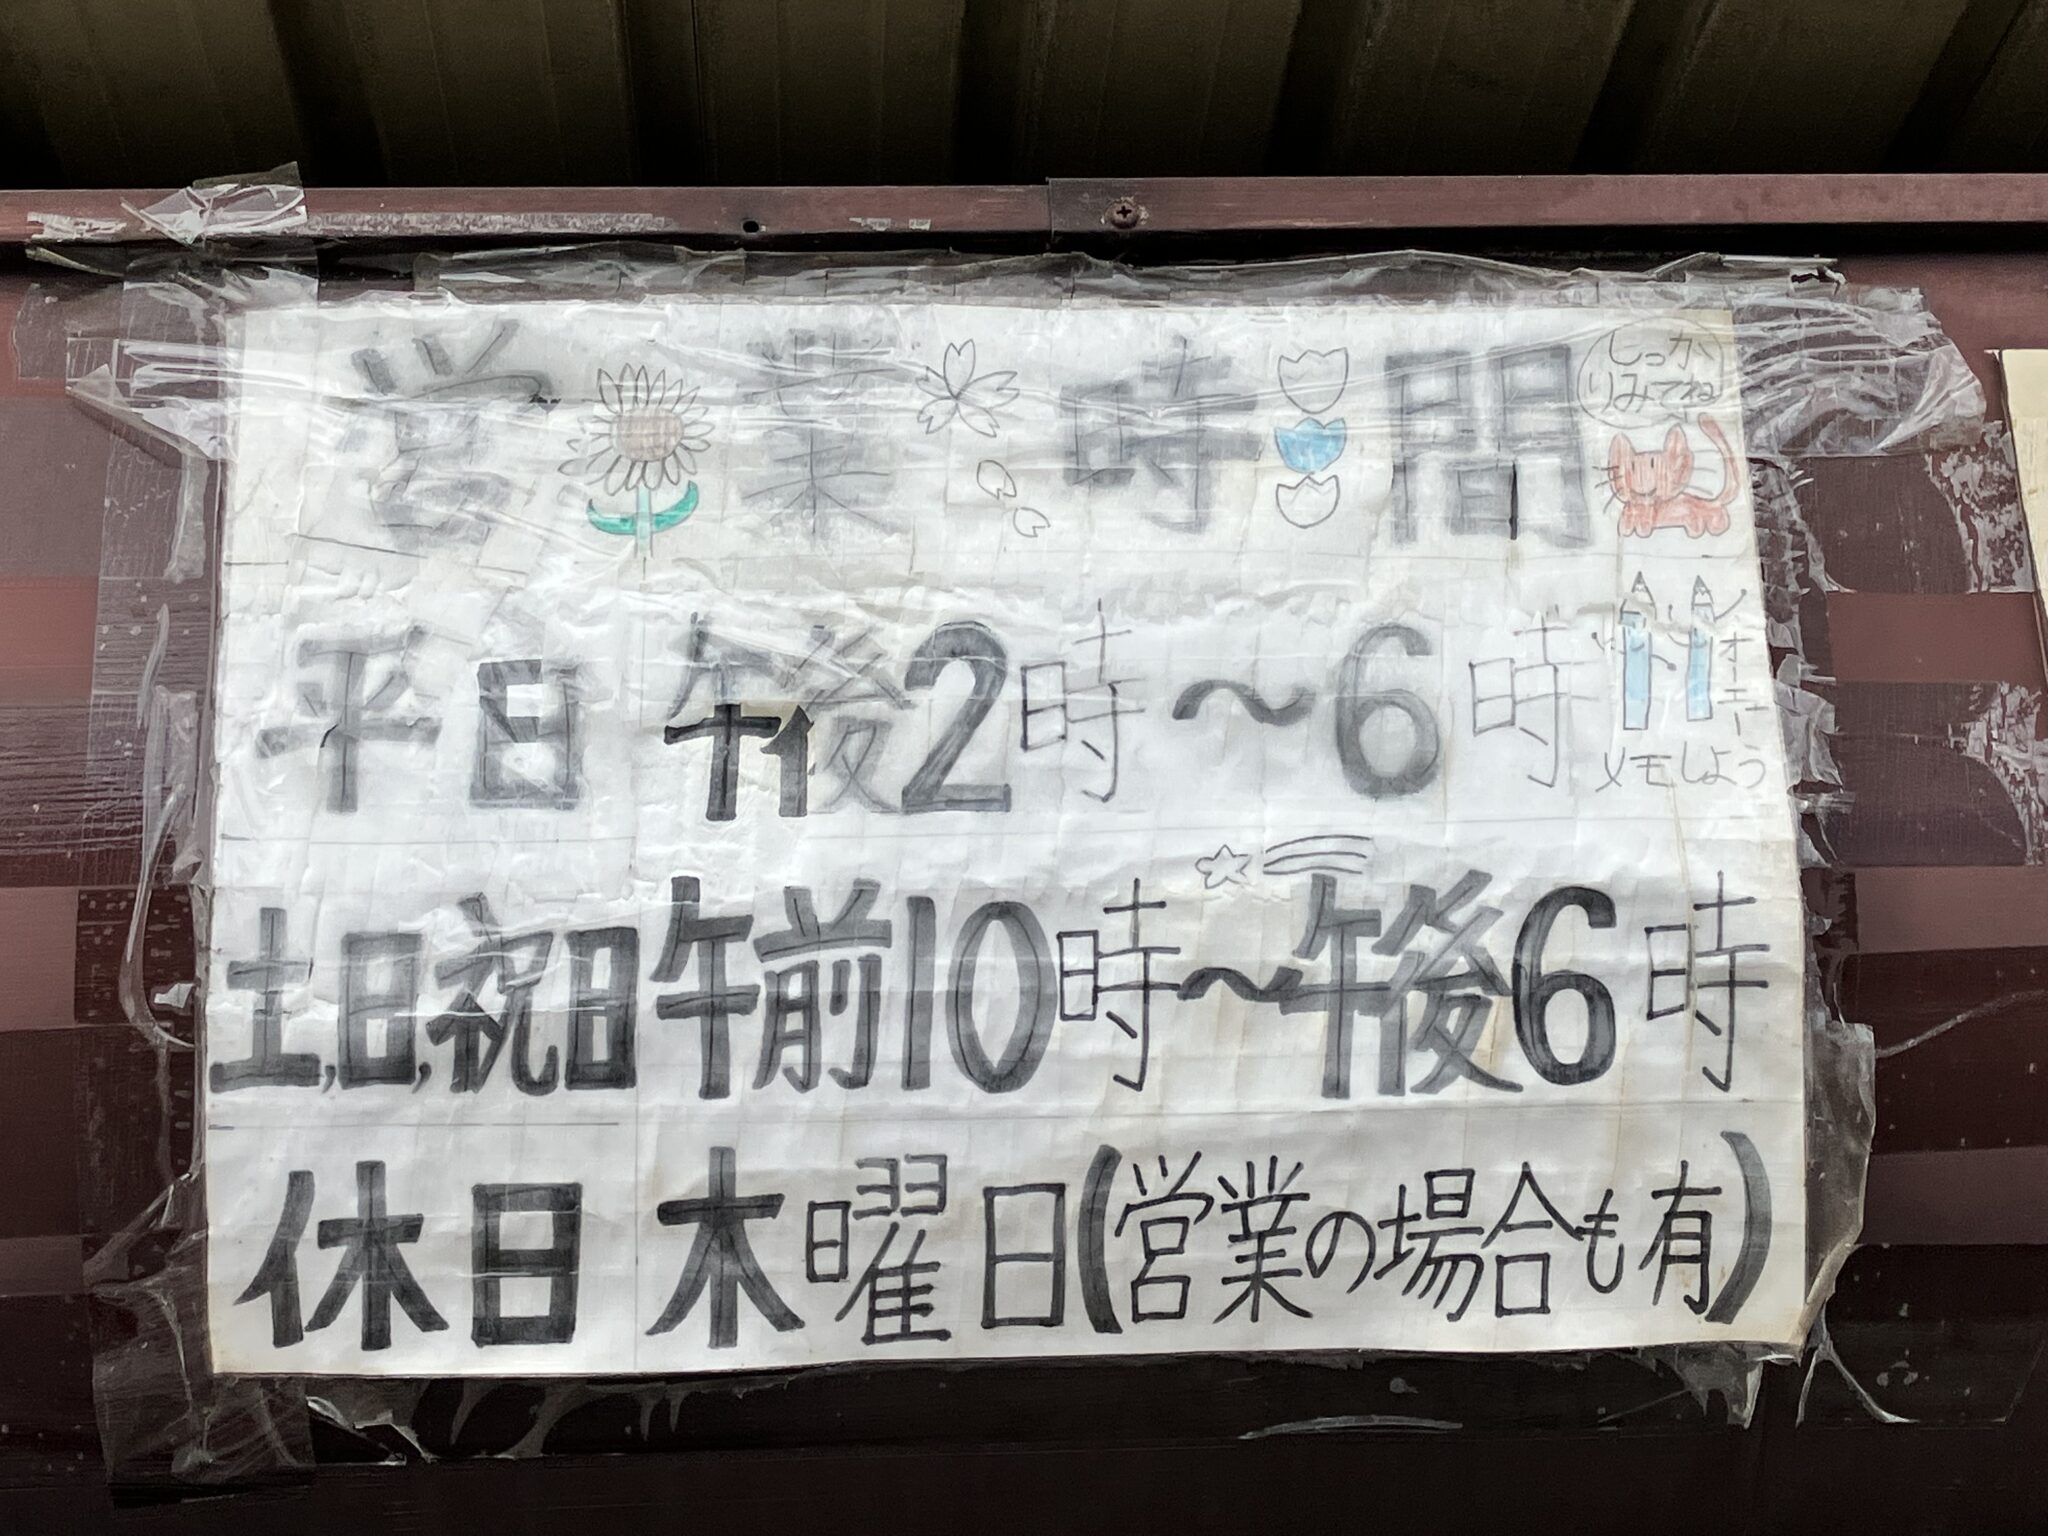 営業時間
しっか
りみてね
平日 午後2時～6時
メモしよう
土,日,祝日 午前10時～午後6時
休日 木曜日(営業の場合も有)